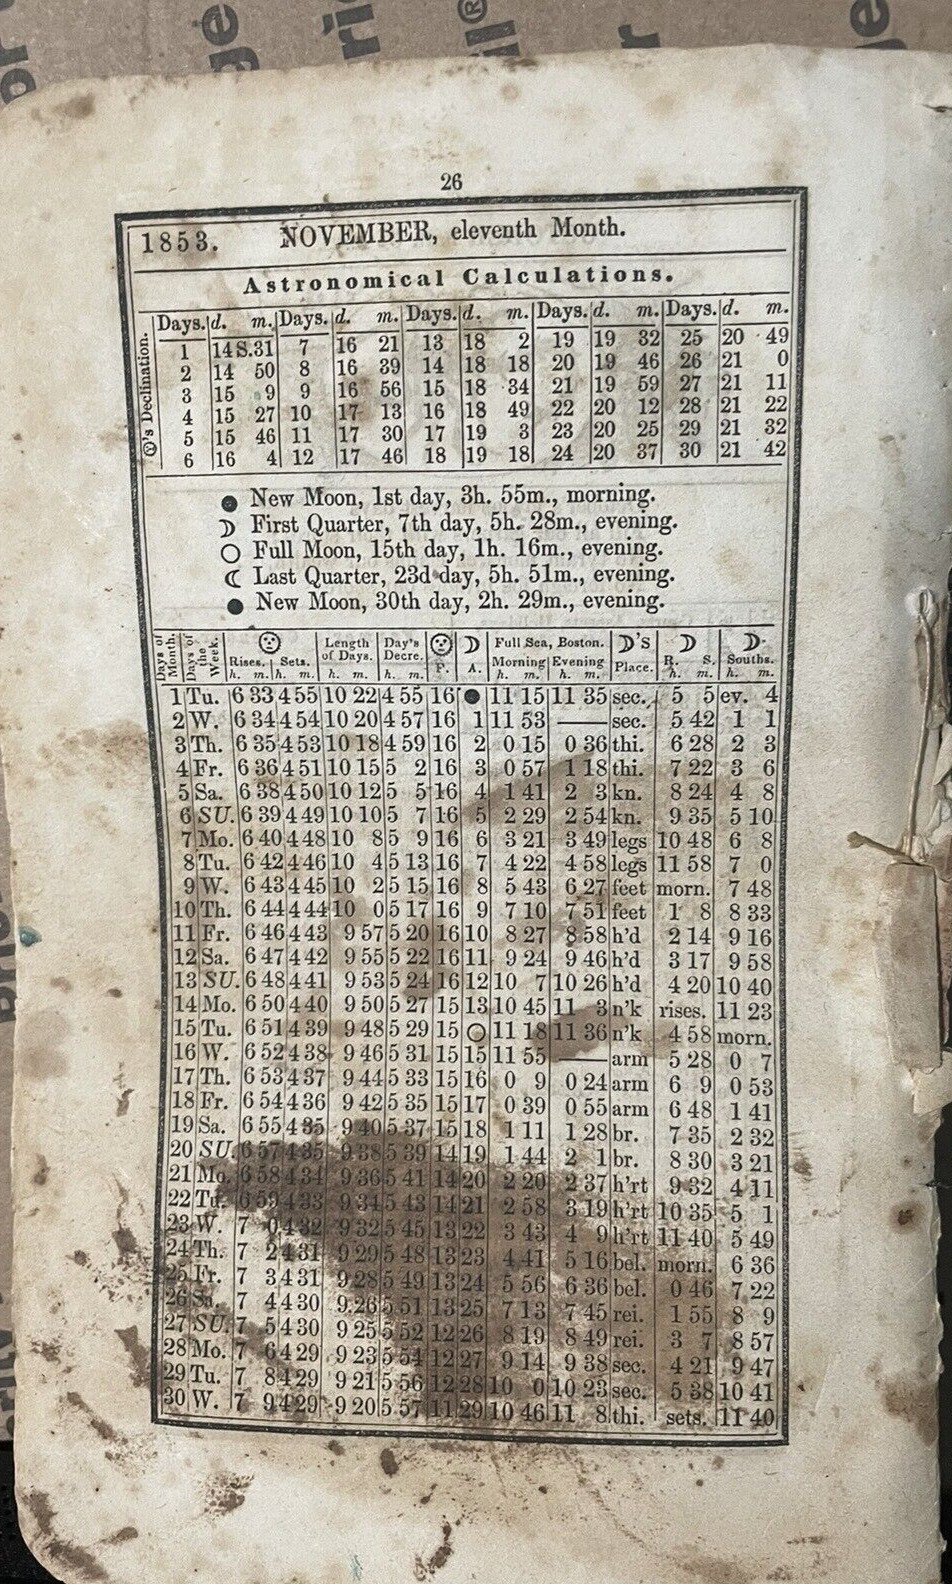 26
1853. NOVEMBER, eleventh Month.
Astronomical Calculations.
☉'s Declination. Days. d. m. Days. d. m. Days. d. m. Days. d. m. Days. d. m.
1 14S.31 7 16 21 13 18 2 19 19 32 25 20 49
2 14 50 8 16 39 14 18 18 20 19 46 26 21 0
3 15 9 9 16 56 15 18 34 21 19 59 27 21 11
4 15 27 10 17 13 16 18 49 22 20 12 28 21 22
5 15 46 11 17 30 17 19 3 23 20 25 29 21 32
6 16 4 12 17 46 18 19 18 24 20 37 30 21 42
● New Moon, 1st day, 3h. 55m., morning.
☽ First Quarter, 7th day, 5h. 28m., evening.
○ Full Moon, 15th day, 1h. 16m., evening.
☾ Last Quarter, 23d day, 5h. 51m., evening.
● New Moon, 30th day, 2h. 29m., evening.
Days of Month. Days of the Week. ☉ Rises. Sets. Length of Days. Day's Decre. ☉ F. ☽ A. Full Sea, Boston. Morning Evening ☽'S Place. ☽ R. S. ☽ Souths.
h. m. h. m. h. m. h. m. h. m. h. m. h. m. h. m.
1 Tu. 6 33 4 55 10 22 4 55 16 ● 11 15 11 35 sec. 5 5 ev. 4
2 W. 6 34 4 54 10 20 4 57 16 1 11 53 —— sec. 5 42 1 1
3 Th. 6 35 4 53 10 18 4 59 16 2 0 15 0 36 thi. 6 28 2 3
4 Fr. 6 36 4 51 10 15 5 2 16 3 0 57 1 18 thi. 7 22 3 6
5 Sa. 6 38 4 50 10 12 5 5 16 4 1 41 2 3 kn. 8 24 4 8
6 SU. 6 39 4 49 10 10 5 7 16 5 2 29 2 54 kn. 9 35 5 10
7 Mo. 6 40 4 48 10 8 5 9 16 6 3 21 3 49 legs 10 48 6 8
8 Tu. 6 42 4 46 10 4 5 13 16 7 4 22 4 58 legs 11 58 7 0
9 W. 6 43 4 45 10 2 5 15 16 8 5 43 6 27 feet morn. 7 48
10 Th. 6 44 4 44 10 0 5 17 16 9 7 10 7 51 feet 1 8 8 33
11 Fr. 6 46 4 43 9 57 5 20 16 10 8 27 8 58 h'd 2 14 9 16
12 Sa. 6 47 4 42 9 55 5 22 16 11 9 24 9 46 h'd 3 17 9 58
13 SU. 6 48 4 41 9 53 5 24 16 12 10 7 10 26 h'd 4 20 10 40
14 Mo. 6 50 4 40 9 50 5 27 15 13 10 45 11 3 n'k rises. 11 23
15 Tu. 6 51 4 39 9 48 5 29 15 ○ 11 18 11 36 n'k 4 58 morn.
16 W. 6 52 4 38 9 46 5 31 15 15 11 55 —— arm 5 28 0 7
17 Th. 6 53 4 37 9 44 5 33 15 16 0 9 0 24 arm 6 9 0 53
18 Fr. 6 54 4 36 9 42 5 35 15 17 0 39 0 55 arm 6 48 1 41
19 Sa. 6 55 4 35 9 40 5 37 15 18 1 11 1 28 br. 7 35 2 32
20 SU. 6 57 4 35 9 38 5 39 14 19 1 44 2 1 br. 8 30 3 21
21 Mo. 6 58 4 34 9 36 5 41 14 20 2 20 2 37 h'rt 9 32 4 11
22 Tu. 6 59 4 33 9 34 5 43 14 21 2 58 3 19 h'rt 10 35 5 1
23 W. 7 0 4 32 9 32 5 45 13 22 3 43 4 9 h'rt 11 40 5 49
24 Th. 7 2 4 31 9 29 5 48 13 23 4 41 5 16 bel. morn. 6 36
25 Fr. 7 3 4 31 9 28 5 49 13 24 5 56 6 36 bel. 0 46 7 22
26 Sa. 7 4 4 30 9 26 5 51 13 25 7 13 7 45 rei. 1 55 8 9
27 SU. 7 5 4 30 9 25 5 52 12 26 8 19 8 49 rei. 3 7 8 57
28 Mo. 7 6 4 29 9 23 5 54 12 27 9 14 9 38 sec. 4 21 9 47
29 Tu. 7 8 4 29 9 21 5 56 12 28 10 0 10 23 sec. 5 38 10 41
30 W. 7 9 4 29 9 20 5 57 11 29 10 46 11 8 thi. sets. 11 40